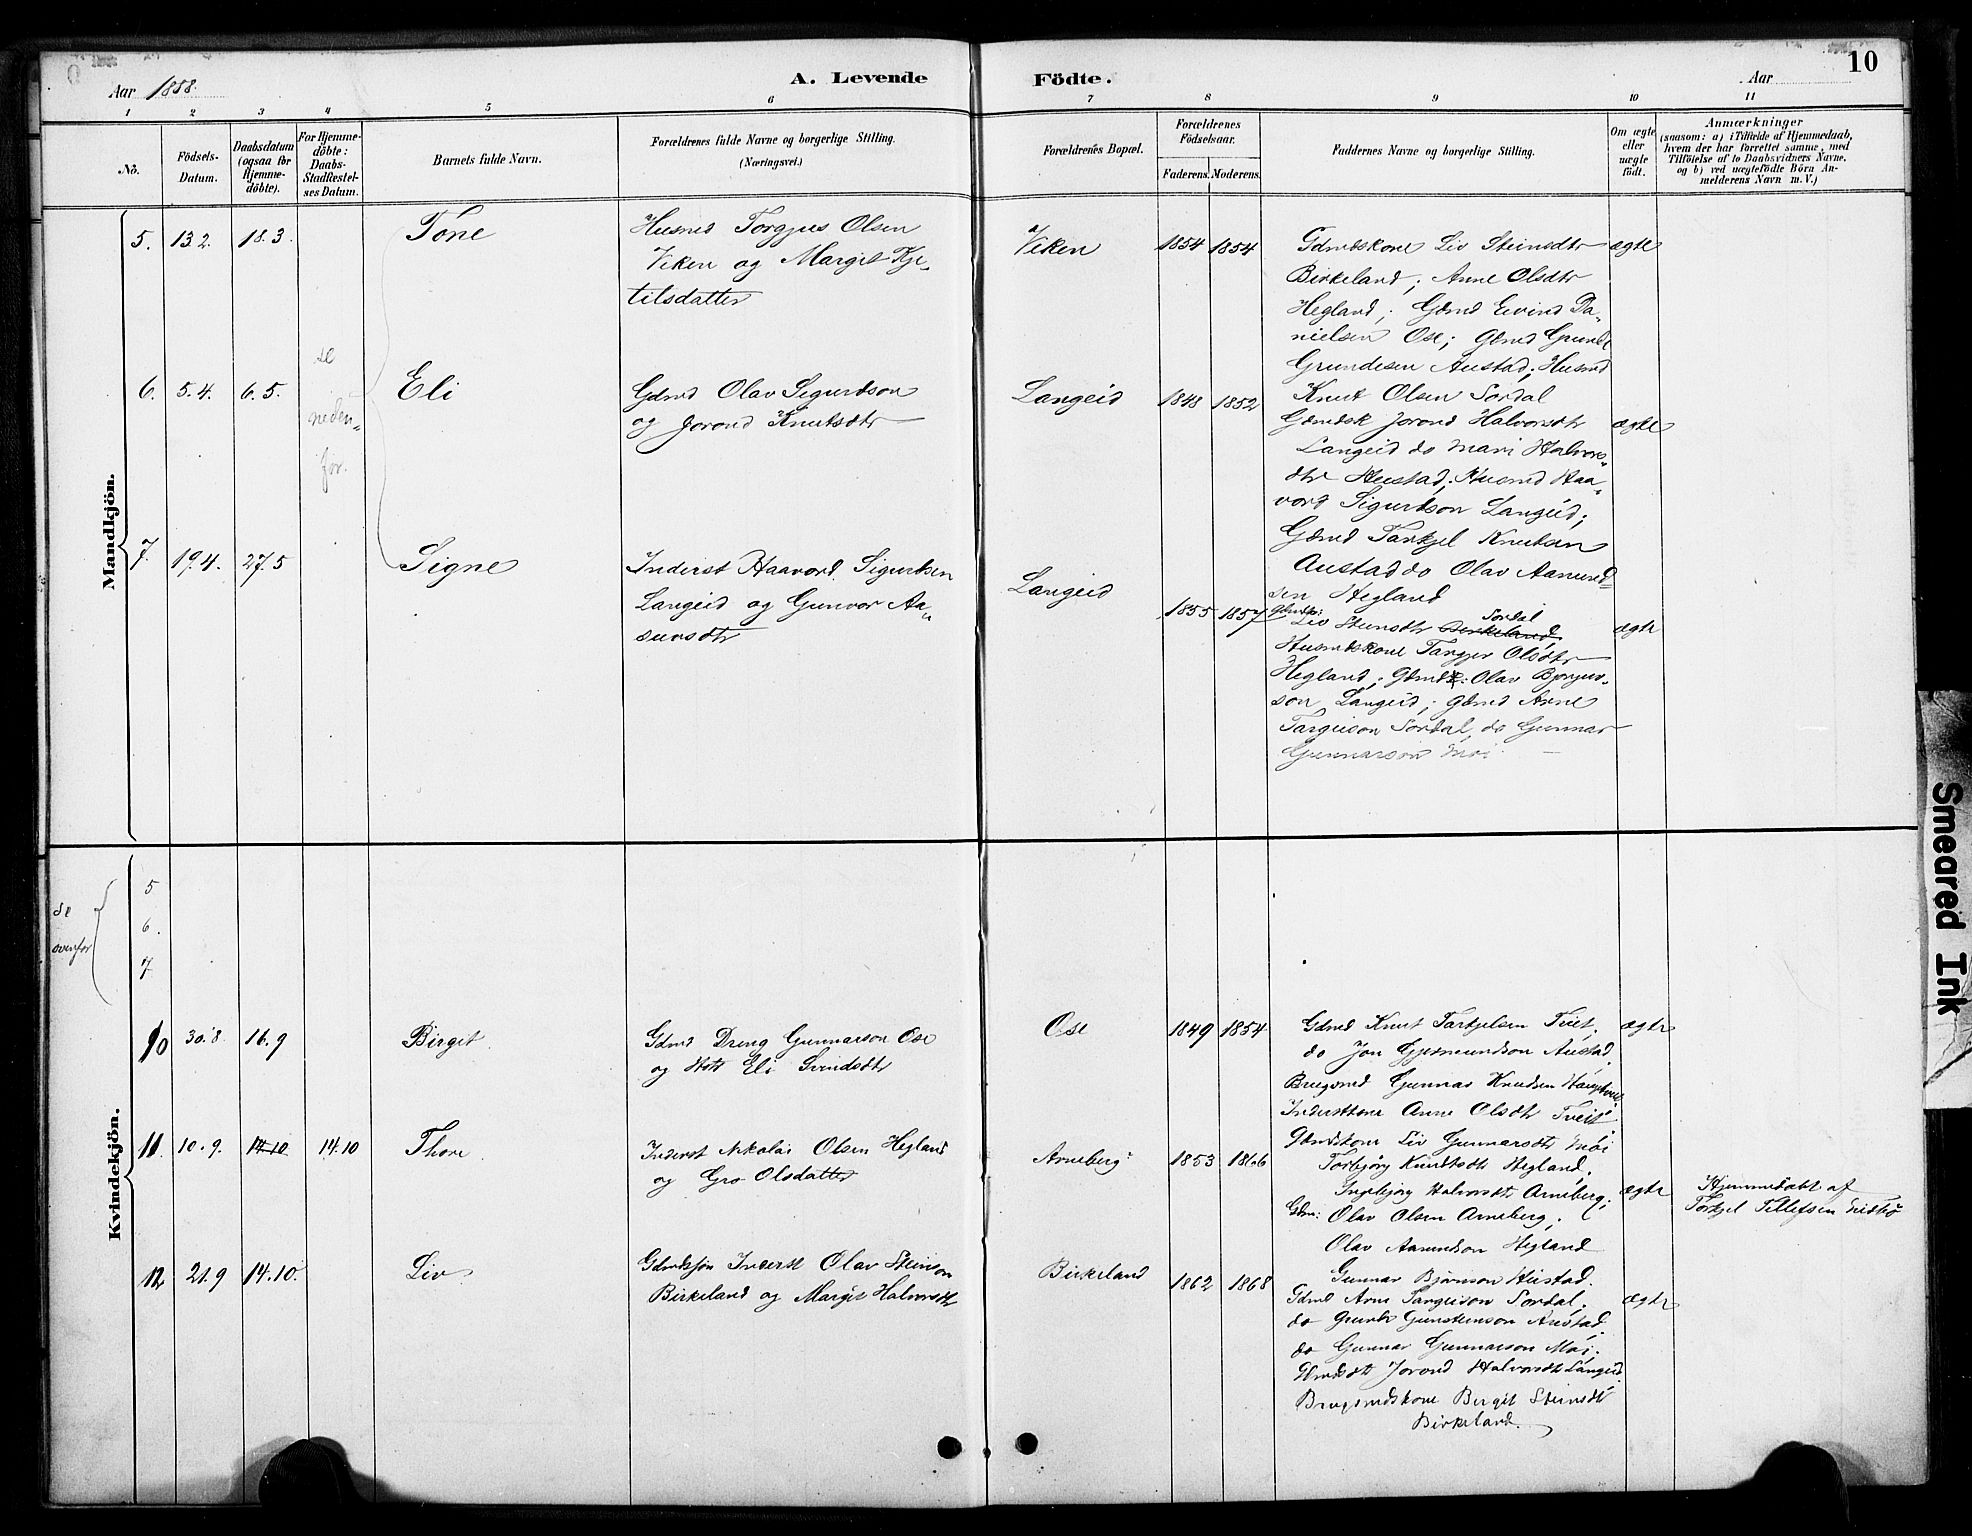 10
Aar 1888.
A. Levende Födte.
Aar
1 2 3 4 5 6 7 8 9 10 11
No.
Födsels-
Datum.
Daabsdatum
(ogsaa for
Hjemme-
döbte).
For Hjemme-
döbte:
Daabs-
Stadfæstel-
ses Datum.
Barnets fulde Navn.
Forældrenes fulde Navne og borgerlige Stilling.
(Næringsvei.)
Forældrenes Bopæl.
Forældrenes
Födselsaar.
Faderens. Moderens.
Faddernes Navne og borgerlige Stilling.
Om ægte
eller
uægte
födt.
Anmærkninger
(saasom: a) i Tilfælde af Hjemmedaab,
hvem der har forrettet samme, med
Tilföielse af to Daabsvidners Navne,
og b) ved uægtefödte Börn An-
melderens Navn m. V.)
Mandkjön.
5. 13.2. 18.3.
Tone
Husmd Torgjus Olsen
Viken og Margit Kje-
tilsdatter
Viken
1854 1854
Gdmdskone Liv Steinsdtr
Birkeland; Anne Olsdtr
Hegland; Gdmd Eivind Da-
nielsen Ose; Gdmd
Grundesen Austad; Husmd
Knut Olsen Sordal
ægte
se
neden-
for.
6. 5.4. 6.5.
Eli
Gdmd Olav Sigurdson
og Jorond Knutsdtr
Langeid
1848 1852
Gdmdsk Jorond Halvorsdtr
Langeid do Mari Halvors-
dtr Heistad; Husmd Haa-
vord Sigurdson Langeid;
Gdmd Tarkjel Knutsen
Austad do Olav Aamund-
sen Hegland
ægte
7. 19.4. 27.5
Signe
Inderst Haavord Sigurdsen
Langeid og Gunvor Aa-
sunsdtr
Langeid
1855 1857
Sordal
Liv Steinsdtr Birkeland,
Husmdskone Targjer Olsdtr
Hegland; Gdmd: Olav Bjorgu-
son Langeid; Gdmd Arne
Targeison Sordal, do Gunnar
Gunnarson Moi
ægte
Kvindekjön.
se
ovenfor
5
6.
7
10 30.8. 16.9
Birgit
Gdmd Dreng Gunnarson Ose
og Hstr Eli Svindsdtr
Ose
1849 1854
Gdmd Knut Tarkjelsen Tveit.
do Jon Gjermundson Austad.
Brugsmd Gunnar Knudsen
Inderstkone Anne Olsdtr Tveit
Gdmdskone Liv Gunnarsdtr Moi
ægte
11. 10.9. 14.10 14.10
Thore
Inderst Nikolai Olsen Hegland
og Gro Olsdatter
Arneberg
1853 1866
Torbjörg Knudtsdtr Hegland.
Ingebjörg Halvorsdtr Arneberg;
Gdm: Olav Olsen Arneberg;
Olav Aamundson Hegland
Gunnar Bjornson Heistad.
ægte
Hjemmedøbt af
Torkjel Tellefsen
12 21.9 14.10.
Liv
Gdmdssön Inderst Olav Steinson
Birkeland og Margit Halvorsdtr
Birkeland
1862 1868
Gdmd Arne Targeison Sordal.
do Gunstenson Austad.
do Gunnar Gunnarson Moi.
Gdmdsdtr Jorond Halvorsdtr Langeid.
Brugsmdskone Birgit Steinsdtr
Birkeland.
ægte
Smeared Ink